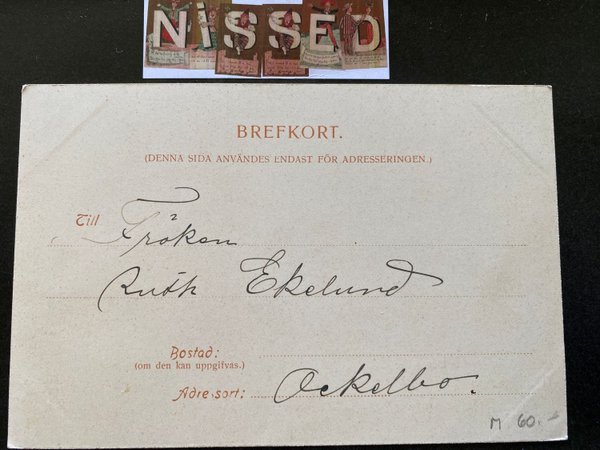 NISSED
BREFKORT.
(DENNA SIDA ANVÄNDES ENDAST FÖR ADRESSERINGEN.)
Till Fröken
Ruth Ekelund
Bostad:
(om den kan uppgifvas.)
Adresort: Ockelbo.
M 60.-